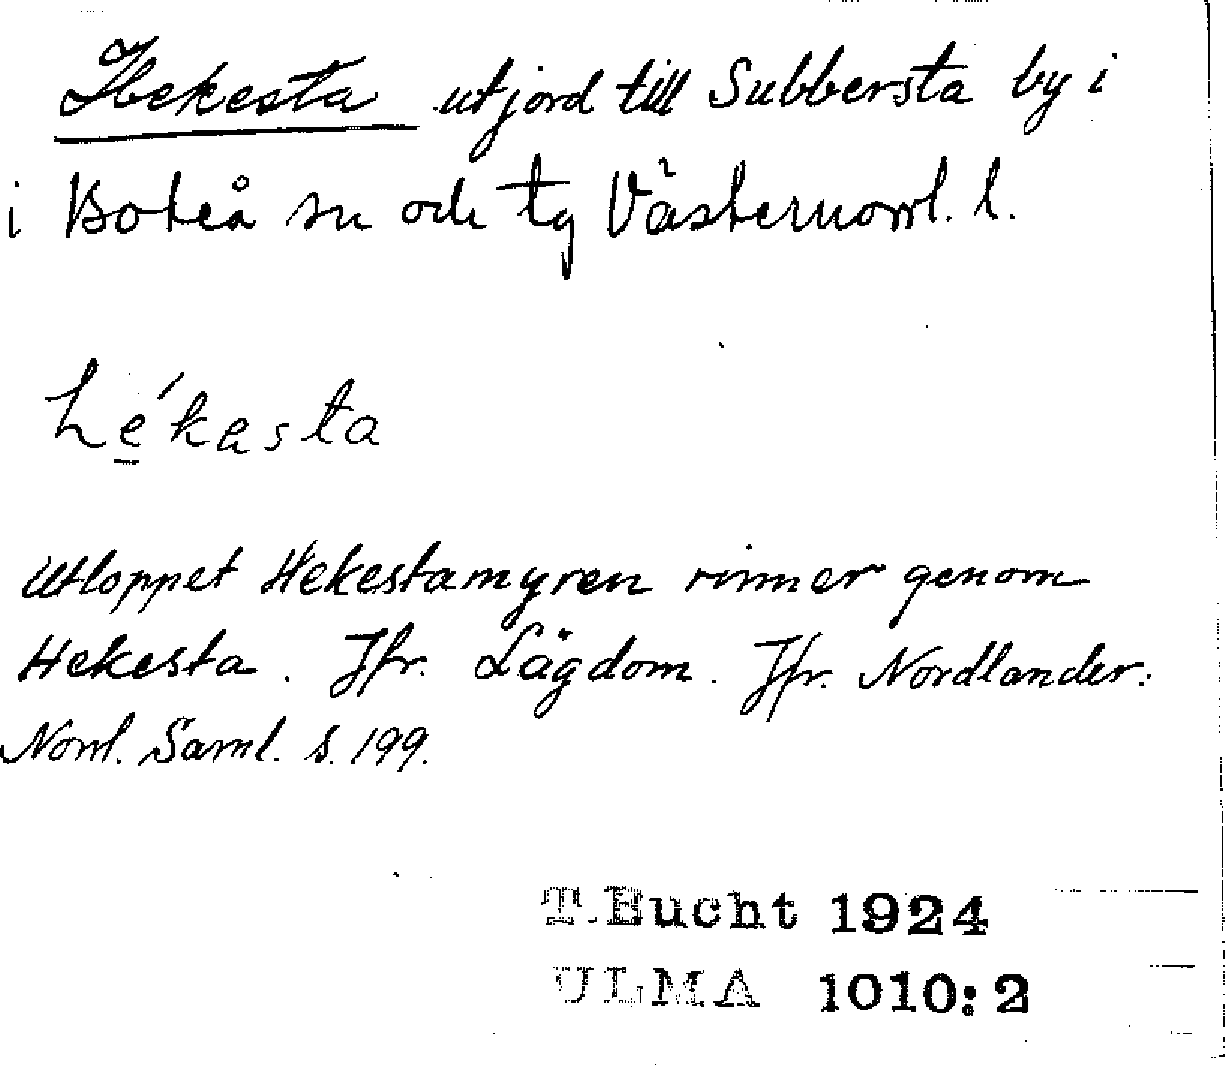 Hekesta utjord till Subbersta by i
i Boteå sn och tg Västernorrl. l.
hékasta
Utloppet Hekestamyren rinner genom
Hekesta. Jfr. Lägdom. Jfr. Nordlander:
Norrl. Saml. s. 199.
T. Bucht 1924
ULMA 1010:2